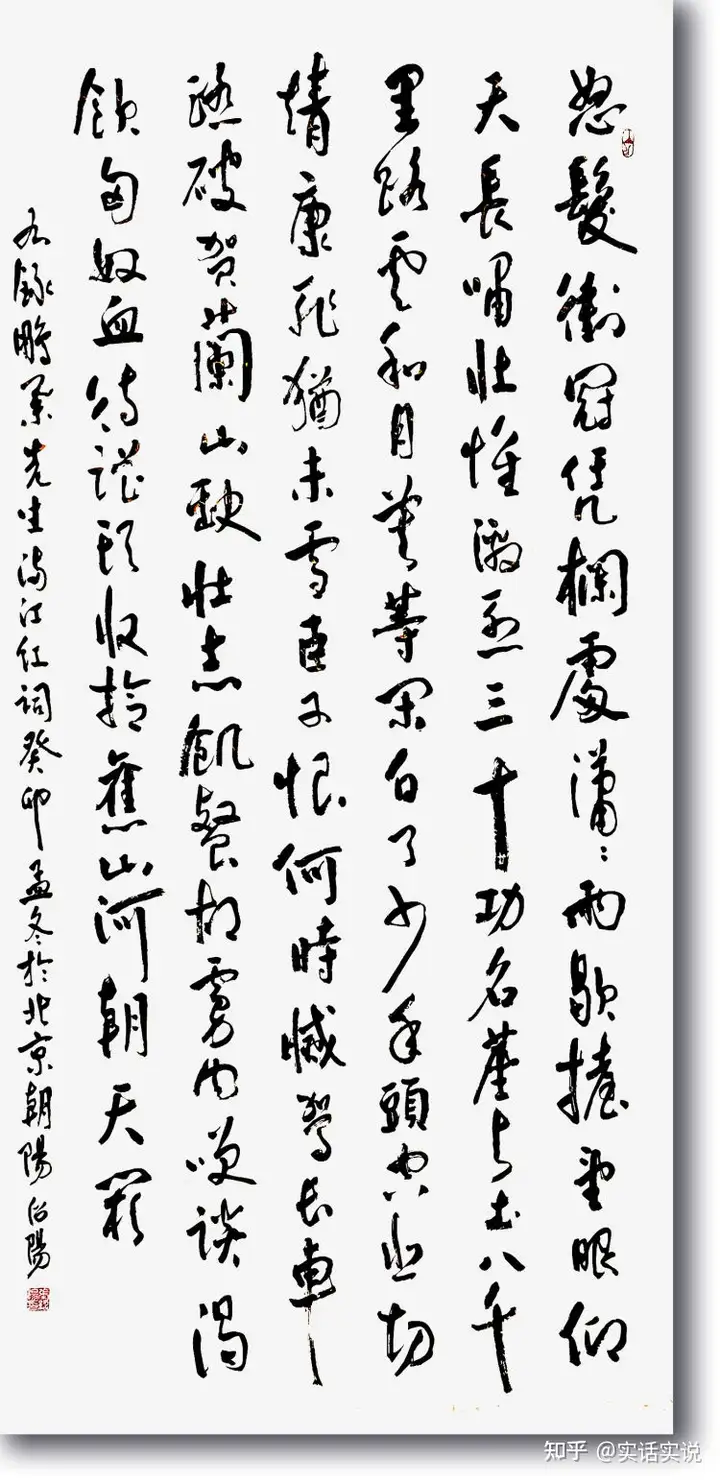 怒髮衝冠凭欄處瀟〻雨歇擡望眼仰
天長嘯壯懷激烈三十功名塵与土八千
里路雲和月莫等閑白了少年頭空悲切
靖康耻猶未雪臣子恨何時滅駕长車
踏破贺蘭山缺壯志飢餐胡虜肉笑談渴
飲匈奴血待從頭收拾舊山河朝天闕
右錄鵬舉先生满江红詞癸卯孟冬於北京朝陽
知乎 @实话实说